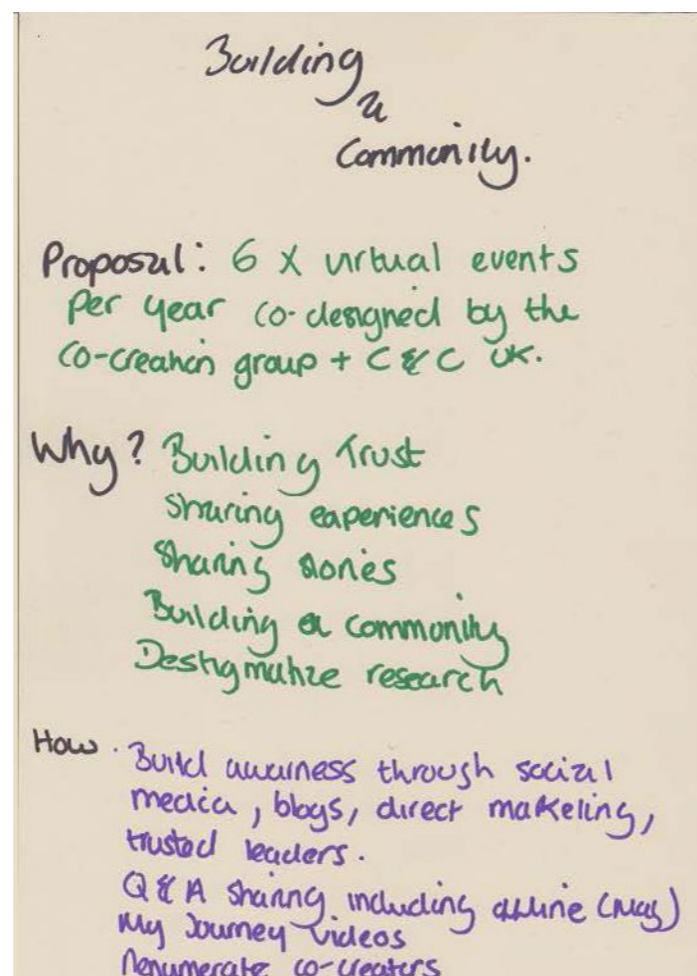 Building
a
Community.
Proposal: 6 X virtual events
per year co-designed by the
co-creation group + C & C UK.
Why? Building Trust
Sharing experiences
Sharing stories
Building a community
Destigmatize research
How. Build awarness through social
media, blogs, direct marketing,
trusted leaders.
Q & A sharing including offline (Mag)
My Journey Videos
Renumerate co-creators